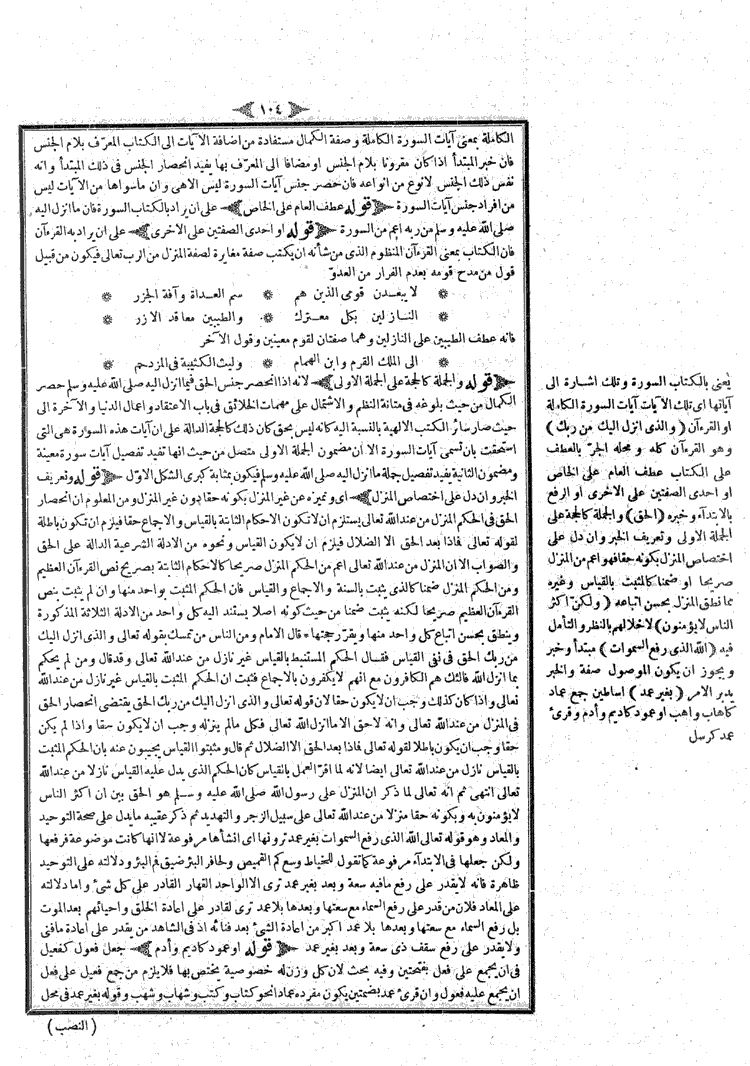 ١٠٤
الكاملة بمعنى آيات السورة الكاملة وصفة الكمال مستفادة من اضافة الآيات الى الكتاب المعرّف بلام الجنس
فان خبر المبتدأ اذا كان مقرونا بلام الجنس او مضافا الى المعرف بها يفيد انحصار الجنس فى ذلك المبتدأ وانه
نفس ذلك الجنس لا نوع من انواعه فان حصر جنس آيات السورة ليس الاهى وان ماسواها من الآيات ليس
من افراد جنس آيات السورة ﴿قوله عطف العام على الخاص﴾ على ان يراد بالكتاب السورة فان ما انزل اليه
صلى الله عليه وسلم من ربه اعم من السورة ﴿قوله او احدى الصفتين على الاخرى﴾ على ان يراد به القرءآن
فان الكتاب بمعنى القرءآن المنظوم الذى من شأنه ان يكتب صفة مغايرة لصفة المنزل من الرب تعالى فيكون من قبيل
قول من مدح قومه بعدم الفرار من العدوّ
❋ لا يبعدن قومى الذين هم ❋ سم العداة وآفة الجزر ❋
❋ النازلين بكل معترك ❋ والطيبين معاقد الازر ❋
فانه عطف الطيبين على النازلين وهما صفتان لقوم معينين وقول الآخر
❋ الى الملك القرم وابن الهمام ❋ وليث الكتيبة فى المزدحم ❋
﴿قوله والجملة كالحجة على الجملة الاولى﴾ لانه اذا انحصر جنس الحق فيما انزل اليه صلى الله عليه وسلم حصر
الكمال من حيث بلوغه فى متانة النظم والاشتمال على مهمات الخلائق فى باب الاعتقاد واعمال الدنيا والآخرة الى
حيث صار سائر الكتب الالهية بالنسبة اليه كانه ليس بحق كان ذلك كالحجة الدالة على ان آيات هذه السوارة هى التى
استحقت بان تسمى آيات السورة الا ان مضمون الجملة الاولى متصل من حيث انها تفيد تفصيل آيات سورة معينة
ومضمون الثانية يفيد تفصيل جملة ما انزل اليه صلى الله عليه وسلم فيكون بمثابة كبرى الشكل الاوّل ﴿قوله وتعريف
الخبر وان دل على اختصاص المنزل﴾ اى وتميزه عن غير المنزل بكونه حقا دون غير المنزل ومن المعلوم ان انحصار
الحق فى الحكم المنزل من عند الله تعالى يستلزم ان لا تكون الاحكام الثابتة بالقياس والاجماع حقا فيلزم ان تكون باطلة
لقوله تعالى فماذا بعد الحق الا الضلال فيلزم ان لا يكون القياس ونحوه من الادلة الشرعية الدالة على الحق
والصواب الا ان المنزل من عند الله تعالى اعم من الحكم المنزل صريحا كالاحكام الثابتة بصريح نص القرءآن العظيم
ومن الحكم المنزل ضمنا كالذى يثبت بالسنة والاجماع والقياس فان الحكم المثبت بواحد منها وان لم يثبت بنص
القرءآن العظيم صريحا لكنه يثبت ضمنا من حيث كونه اصلا يستند اليه كل واحد من الادلة الثلاثة المذكورة
وينطق بحسن اتباع كل واحد منها ويقرّر حجتها * قال الامام ومن الناس من تمسك بقوله تعالى والذى انزل اليك
من ربك الحق فى نفى القياس فقال الحكم المستنبط بالقياس غير نازل من عند الله تعالى وقد قال ومن لم يحكم
بما انزل الله فاولئك هم الكافرون مع انهم لا يكفرون بالاجماع فثبت ان الحكم المثبت بالقياس غير نازل من عند الله
تعالى واذا كان كذلك وجب ان لا يكون حقا لان قوله تعالى والذى انزل اليك من ربك الحق يقتضى انحصار الحق
فى المنزل من عند الله تعالى وانه لا حق الا ما انزل الله تعالى فكل ما لم ينزله وجب ان لا يكون حقا واذا لم يكن
حقا وجب ان يكون باطلا لقوله تعالى فاذا بعد الحق الا الضلال ثم قال ومثبتوا القياس يجيبون عنه بان الحكم المثبت
بالقياس نازل من عند الله تعالى ايضا لانه لما اقرّ العمل بالقياس كان الحكم الذى يدل عليه القياس نازلا من عند الله
تعالى انتهى ثم انه تعالى لما ذكر ان المنزل على رسول الله صلى الله عليه وسلم هو الحق بين ان اكثر الناس
لا يؤمنون به وبكونه حقا منزلا من عند الله تعالى على سبيل الزجر والتهديد ثم ذكر عقيبه مايدل على صحة التوحيد
والمعاد وهو قوله تعالى الله الذى رفع السموات بغير عمد ترونها اى انشأها مرفوعة لا انها كانت موضوعة فرفعها
ولكن جعلها فى الابتدآء مرفوعة كما تقول للخياط وسع كم القميص ولحافر البئر ضيق فم البئر ودلالته على التوحيد
ظاهرة فانه لا يقدر على رفع مافيه سعة وبعد بغير عمد ترى الا الواحد القهار القادر على كل شئ واما دلالته
على المعاد فلان من قدر على رفع السماء مع سعتها وبعدها بلا عمد ترى لقادر على اعادة الخلق واحيائهم بعد الموت
بل رفع السماء مع سعتها وبعدها بلا عمد اكبر من اعادة الشئ بعد فنائه اذ فى الشاهد من يقدر على اعادة مافنى
ولا يقدر على رفع سقف ذى سعة وبعد بغير عمد ﴿قوله او عمود كاديم وأدم﴾ جعل فعول كفعيل
فى ان يجمع على فعل بفتحتين وفيه بحث لان كل وزن له خصوصية يختص بها فلا يلزم من جمع فعيل على فعل
ان يجمع عليه فعول وان قرئ عمد بضمتين يكون مفرده عمادا نحو كتاب وكتب وشهاب وشهب وقوله بغير عمد فى محل
(النصب)
يعنى بالكتاب السورة وتلك اشارة الى
آياتها اى تلك الآيات آيات السورة الكاملة
او القرءآن (والذى انزل اليك من ربك)
وهو القرءآن كله ومحله الجرّ بالعطف
على الكتاب عطف العام على الخاص
او احدى الصفتين على الاخرى او الرفع
بالابتدآء وخبره (الحق) والجملة كالحجة على
الجملة الاولى وتعريف الخبر وان دل على
اختصاص المنزل بكونه حقا فهو اعم من المنزل
صريحا او ضمنا كالمثبت بالقياس وغيره
مما نطق المنزل بحسن اتباعه (ولكنّ اكثر
الناس لا يؤمنون) لاخلالهم بالنظر والتأمل
فيه (الله الذى رفع السموات) مبتدأ وخبر
ويجوز ان يكون الموصول صفة والخبر
يدبر الامر (بغير عمد) اساطين جمع عماد
كاهاب واهب او عمود كاديم وأدم وقرئ
عمد كرسل